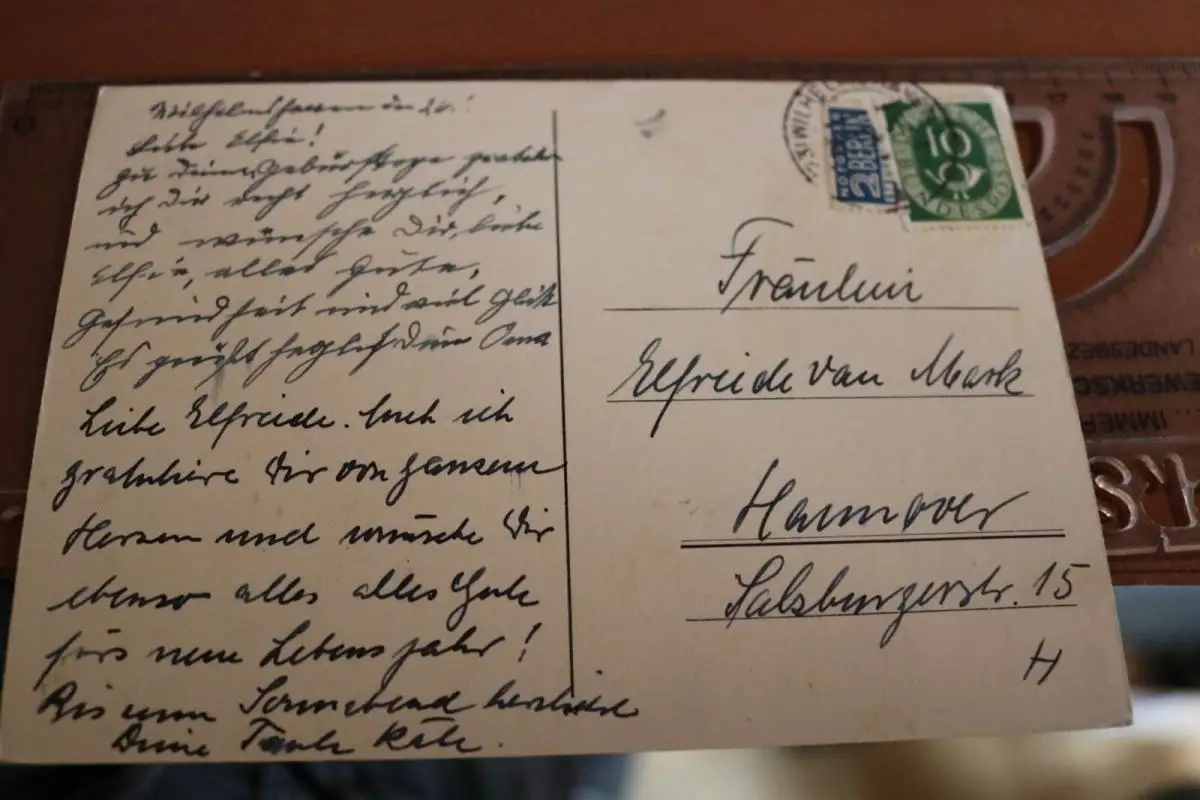 Wilhelmshaven den 26.
Liebe Elfie!
zu deinem Geburtstage gratuliere
ich dir recht herzlich,
und wünsche Dir, liebe
Elfie, alles Gute,
Gesundheit und viel Glück
Es grüßt herzlich Deine Oma
Liebe Elfreide. Auch ich
gratuliere Dir von ganzem
Herzen und wünsche Dir
ebenso alles alles Gute
fürs neue Lebensjahr!
Bis zum Sonnabend herzlichst
Deine Tante Käte.
NOTOPFER
2 BERLIN
10
Fräulein
Elfreide van Mark
Hannover
Salzburgerstr. 15
H
LANDESBEZ
EWERKSC
IMMER